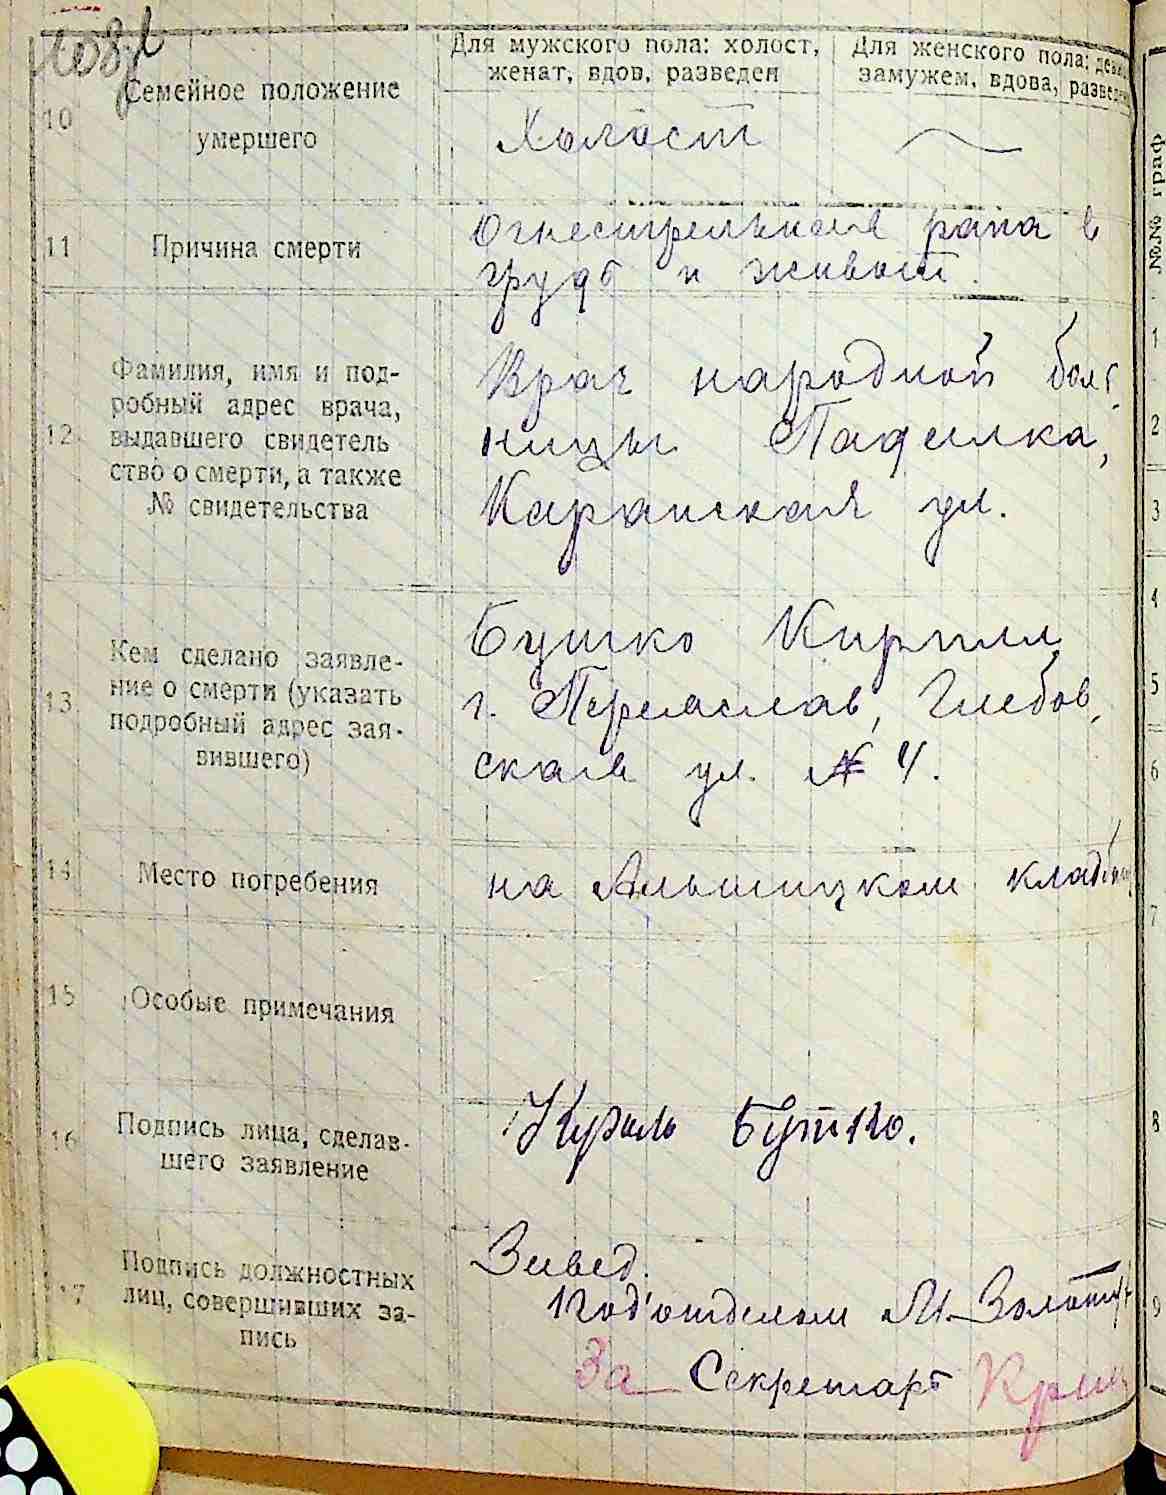 Для мужского пола: холост,
женат, вдов, разведен
Для женского пола:
замужем, вдова,
10
Семейное положение
умершего
Холост
11
Причина смерти
Огнестрельная рана в
грудь и живот.
12
Фамилия, имя и под-
робный адрес врача,
выдавшего свидетель
ство о смерти, а также
№ свидетельства
Врач народной
ницы
ул.
13
Кем сделано заявле-
ние о смерти (указать
подробный адрес зая-
вившего)
Бутко Кирилл
г. Переяслав, Глебов,
ская ул. № 4.
14
Место погребения
на
15
Особые примечания
16
Подпись лица, сделав-
шего заявление
Бутко.
17
Подпись должностных
лиц, совершивших за-
пись
Завед.
под'отделом
За Секретарь
№№ граф
1
2
3
4
5
6
7
8
9